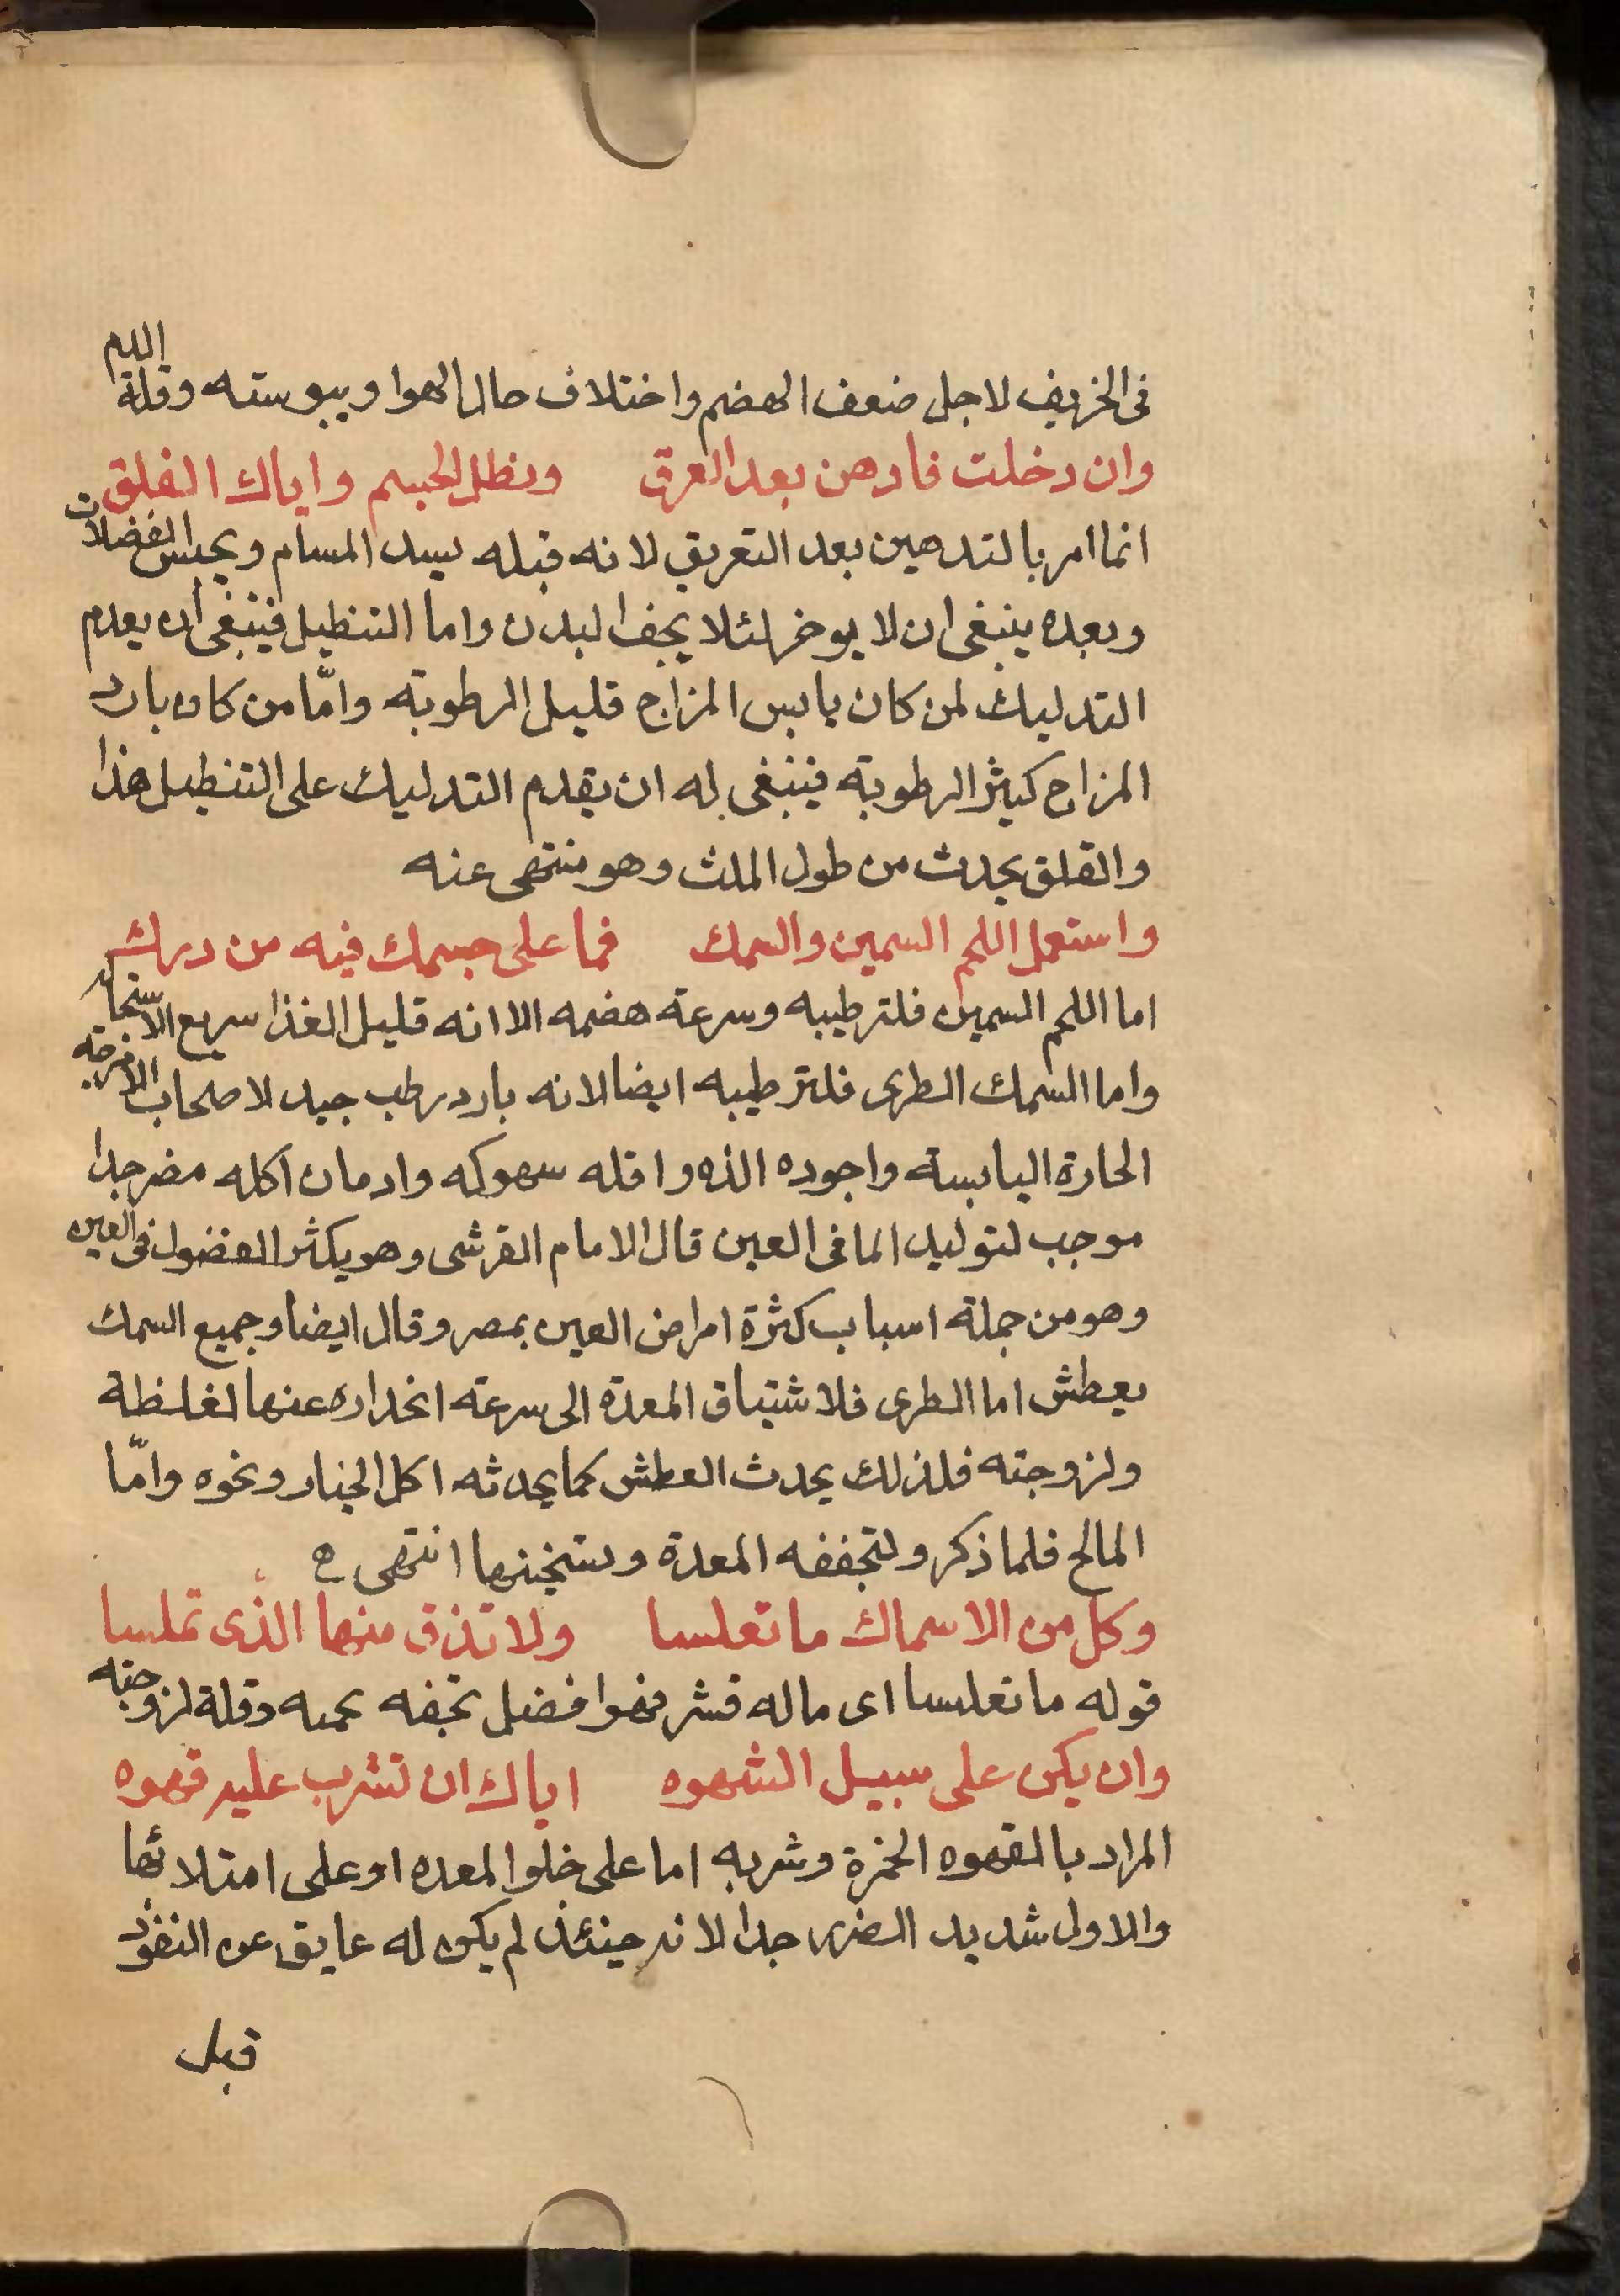 فى الخريف لاجل ضعف الهضم واختلاف حال الهوا ويبوسته وقلة الدم
وان دخلت فادهن بعد العرق ونطل الجسم واياك القلق
انما امر بالتدهين بعد التعريق لانه قبله يسد المسام ويحبس الفضلات
وبعده ينبغى ان لا يوخر لئلا يجف البدن واما التنطيل فينبغى ان يعدم
التدليك لمن كان يابس المزاج قليل الرطوبة وامّا من كان بارد
المزاج كثير الرطوبة فينبغى له ان يقدم التدليك على التنطيل هذا
والقلق يحدث من طول الملث وهو منتهى عنه
واستعمل اللحم السمين والسمك فما على جسمك فيه من درك
اما اللحم السمين فلترطيبه وسرعة هضمه الا انه قليل الغذا سريع الاستحالة
واما السمك الطرى فلترطيبه ايضا لانه بارد رطب جيد لاصحاب الامزجه
الحارة اليابسة واجوده الذه واقله سهوكه وادمان اكله مضر جدا
موجب لتوليد الما فى العين قال الامام القرشى وهو يكثر الفضول فى العين
وهو من جملة اسباب كثرة امراض العين بمصر وقال ايضا وجميع السمك
يعطش اما الطرى فلاشتياق المعدة الى سرعة انحداره عنها لغلظة
ولزوجته فلذلك يحدث العطش كما يحدثه اكل الخيار ونحوه وامّا
المالح فلما ذكر ولتجففه المعدة وتسخينها انتهى
وكل من الاسماك ما تفلسا ولا تذق منها الذى تملسا
قوله ما تفلسا اى ماله قشر فهو افضل لخفة لحمه وقلة لزوجته
وان يكن على سبيل الشهوه اياك ان تشرب عليه قهوه
المراد بالقهوه الخمرة وشربه اما على خلو المعده او على امتلائها
والاولى شديد الضرر جدا لانه حينئذ لم يكن له عايق عن النفوذ
قبل